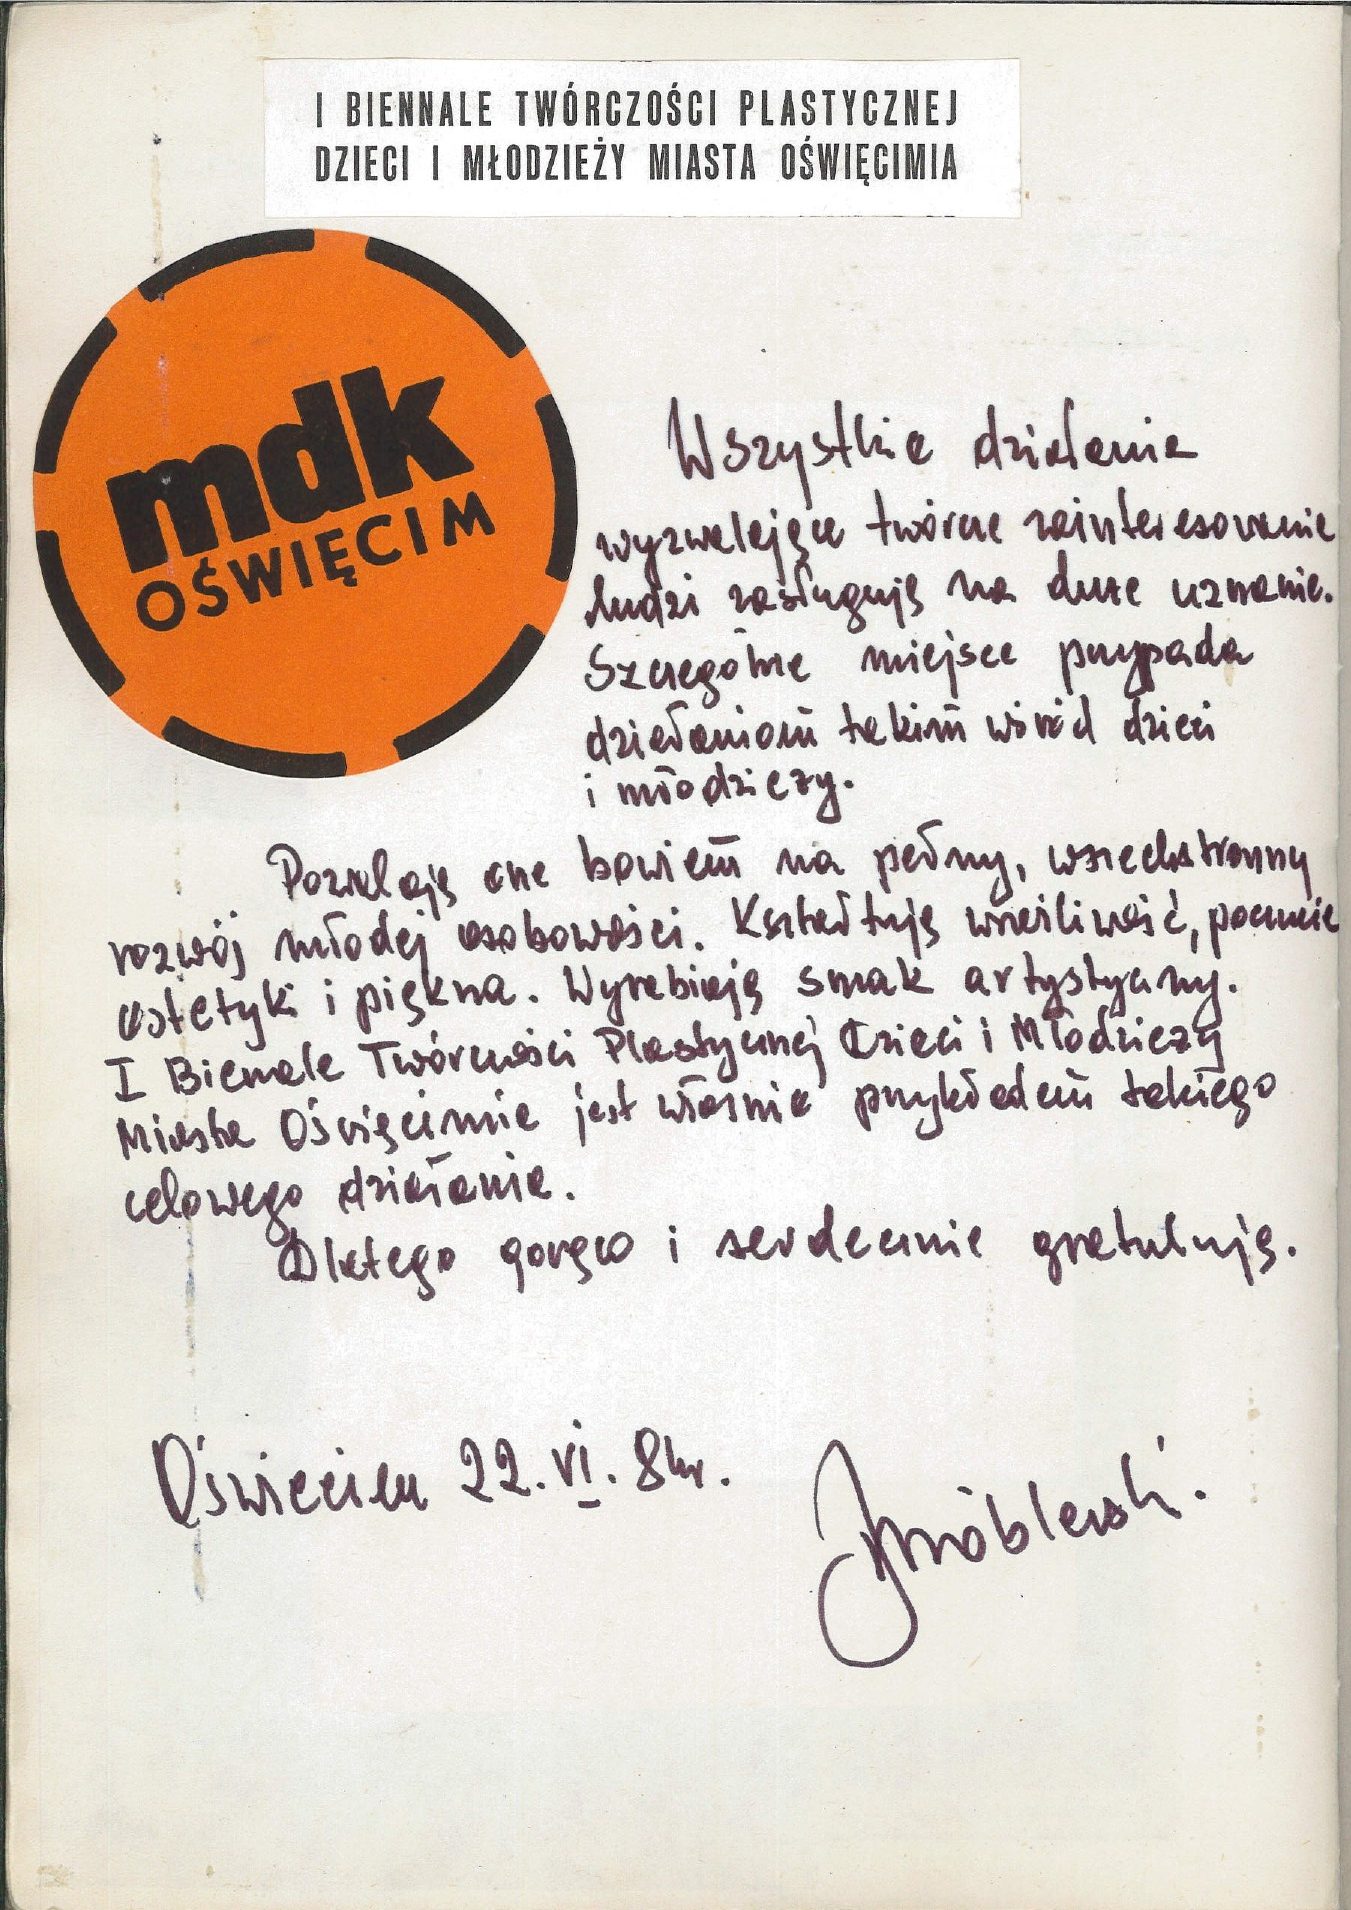 I BIENNALE TWÓRCZOŚCI PLASTYCZNEJ
DZIECI I MŁODZIEŻY MIASTA OŚWIĘCIMIA
mdk
OŚWIĘCIM
Wszystkie działania
wyzwalające twórcze zainteresowanie
ludzi zasługują na duże uznanie.
Szczególne miejsce przypada
działaniom takim wśród dzieci
i młodzieży.
Pozwalają one bowiem na pełny, wszechstronny
rozwój młodej osobowości. Kształtują wrażliwość, poczucie
estetyki i piękna. Wyrabiają smak artystyczny.
I Biennale Twórczości Plastycznej Dzieci i Młodzieży
Miasta Oświęcimia jest właśnie przykładem takiego
celowego działania.
Dlatego gorąco i serdecznie gratuluję.
Oświęcim 22.VI.